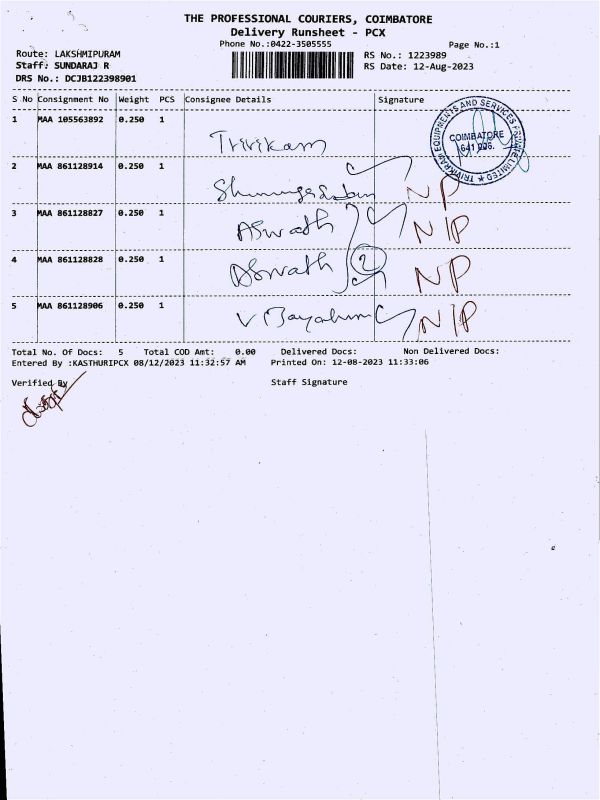 THE PROFESSIONAL COURIERS, COIMBATORE
Delivery Runsheet - PCX
Phone No.:0422-3505555
Page No.:1
Route: LAKSHMIPURAM
RS No.: 1223989
Staff: SUNDARAJ R
RS Date: 12-Aug-2023
DRS No.: DCJB122398901
S No Consignment No Weight PCS Consignee Details Signature
1 MAA 105563892 0.250 1
TRIVIKRAM EQUIPMENTS AND SERVICES PRIVATE LIMITED
COIMBATORE
641 006.
Trivikam
2 MAA 861128914 0.250 1
NP
3 MAA 861128827 0.250 1
Aswath N/P
4 MAA 861128828 0.250 1
Aswath 2 NP
5 MAA 861128906 0.250 1
N/P
Total No. Of Docs: 5 Total COD Amt: 0.00 Delivered Docs: Non Delivered Docs:
Entered By :KASTHURIPCX 08/12/2023 11:32:57 AM Printed On: 12-08-2023 11:33:06
Verified By Staff Signature